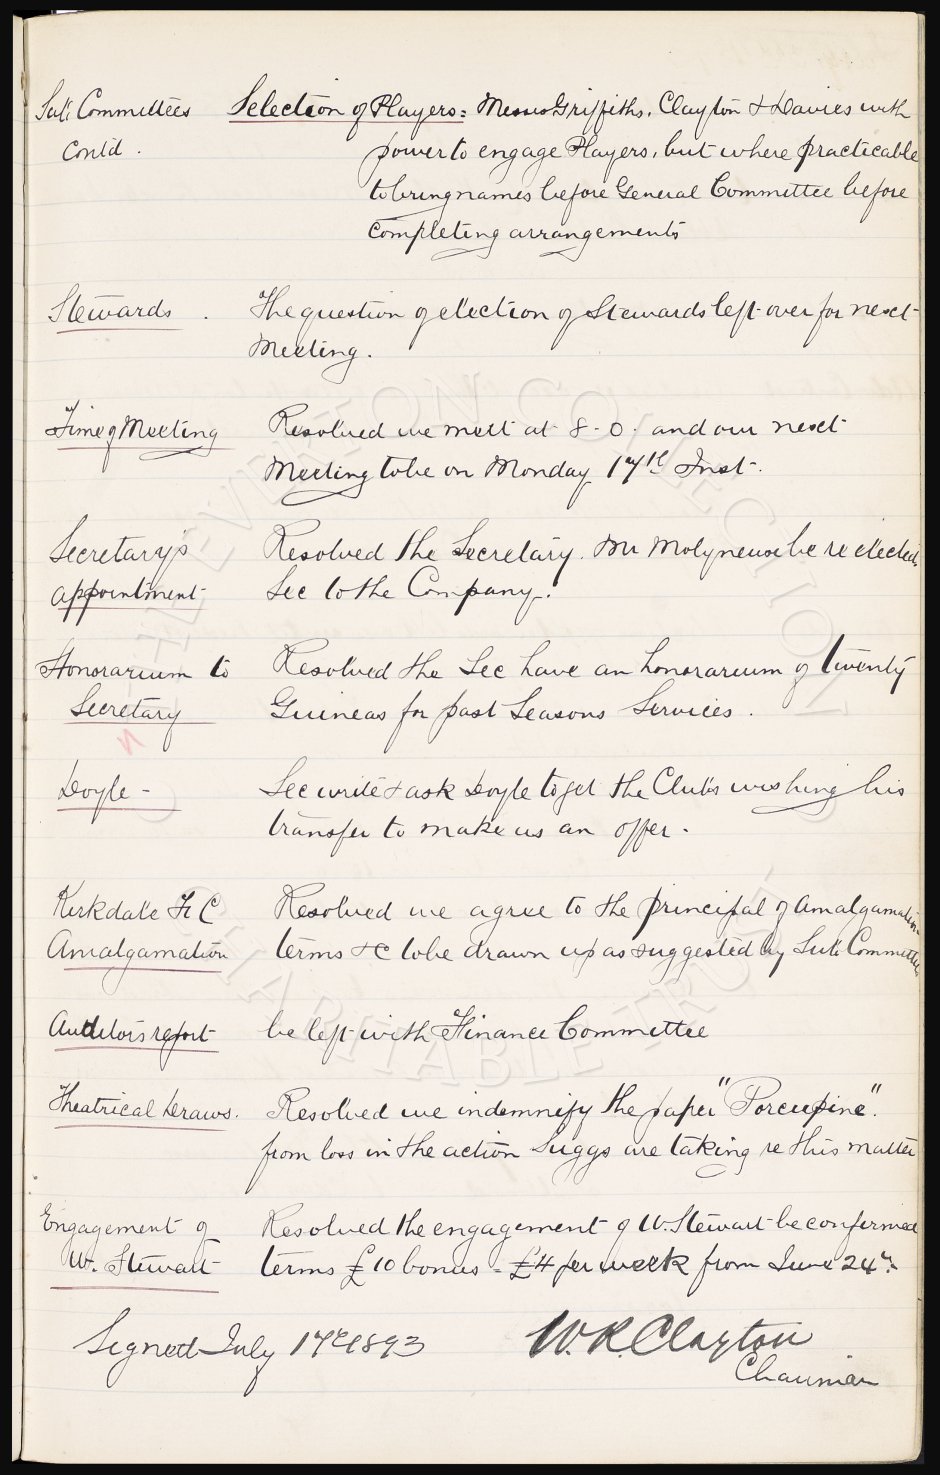 Sub Committees Selection of Players: Messrs Griffiths, Clayton & Davies with
Contd. power to engage Players, but where practicable
to bring names before General Committee before
completing arrangements
Stewards. The question of election of Stewards left over for next
Meeting.
Time of Meeting Resolved we meet at 8-0. and our next
Meeting to be on Monday 17th Inst.
Secretary's Resolved the Secretary. Mr Molyneux be re elected
appointment Sec to the Company.
Honorarium to Resolved the Sec have an honorarium of twenty
Secretary Guineas for past Seasons Services.
Doyle - Sec write & ask Doyle to get the Clubs wishing his
transfer to make us an offer.
Kirkdale F C Resolved we agree to the principal of amalgamation
Amalgamation terms &c to be drawn up as suggested by Sub Committee
Auditors report be left with Finance Committee
Theatrical Draws. Resolved we indemnify the paper "Porcupine".
from loss in the action Suggs are taking re this matter
Engagement of Resolved the engagement of W. Stewart be confirmed
W. Stewart terms £10 bonus - £4 per week from June 24th.
Signed July 17th 1893 W. R. Clayton
Chairman
THE EVERTON COLLECTION
CHARITABLE TRUST